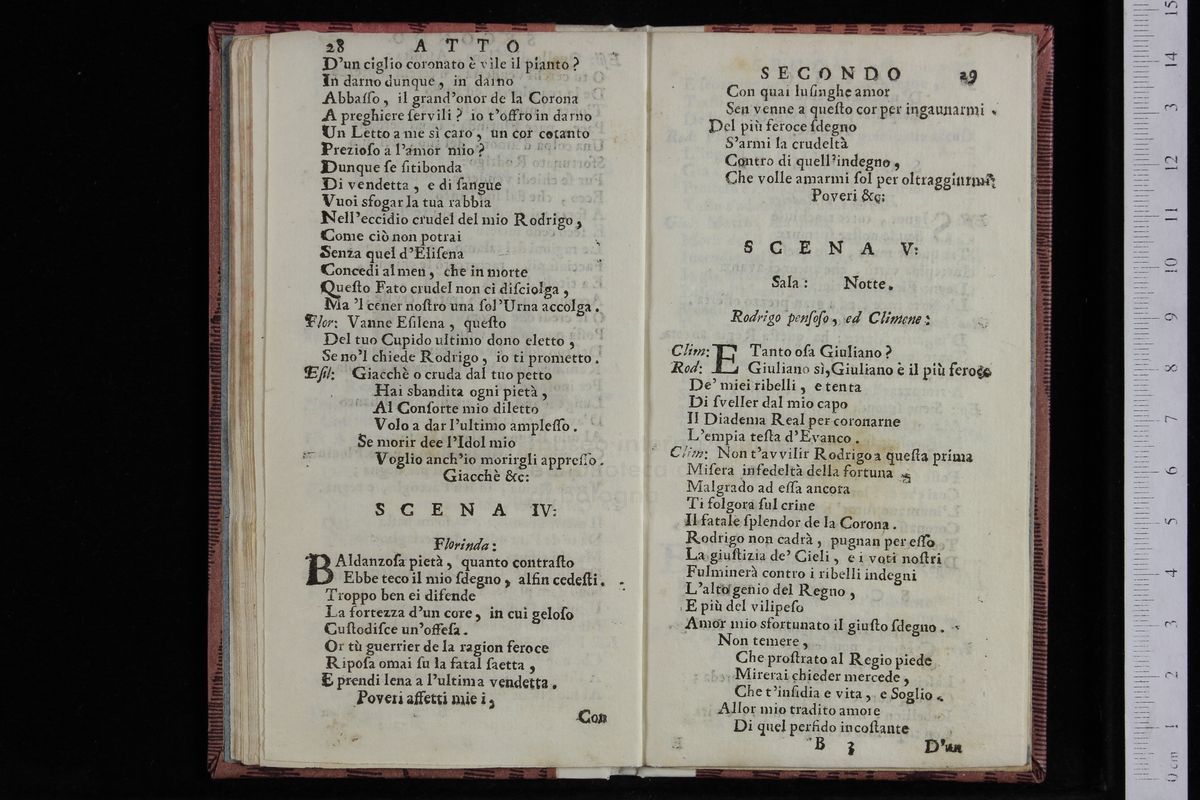 28 ATTO
D'un ciglio coronato è vile il pianto?
In darno dunque, in darno
Abbaſſo, il grand'onor de la Corona
A preghiere ſervili? io t'offro in darno
Un Letto a me sì caro, un cor cotanto
Prezioſo a l'amor mio?
Dunque ſe ſitibonda
Di vendetta, e di ſangue
Vuoi sfogar la tua rabbia
Nell'eccidio crudel del mio Rodrigo,
Come ciò non potrai
Senza quel d'Eliſena
Concedi almen, che in morte
Queſto Fato crudel non ci diſciolga,
Ma 'l cener noſtro una ſol'Urna accolga.
Flor: Vanne Eſilena, queſto
Del tuo Cupido ultimo dono eletto,
Se no'l chiede Rodrigo, io ti prometto.
Eſil: Giacchè o cruda dal tuo petto
Hai sbandita ogni pietà,
Al Conſorte mio diletto
Volo a dar l'ultimo ampleſſo.
Se morir dee l'Idol mio
Voglio anch'io morirgli appreſſo.
Giacchè &c:
SCENA IV:
Florinda:
BAldanzoſa pietà, quanto contraſto
Ebbe teco il mio ſdegno, alfin cedeſti.
Troppo ben ei difende
La fortezza d'un core, in cui geloſo
Cuſtodiſce un'offeſa.
Or tù guerrier de la ragion feroce
Ripoſa omai ſu la fatal ſaetta,
E prendi lena a l'ultima vendetta.
Poveri affetti mie i,
Con
SECONDO 29
Con quai luſinghe amor
Sen venne a queſto cor per ingaunarmi.
Del più feroce ſdegno
S'armi la crudeltà
Contro di quell'indegno,
Che volle amarmi ſol per
Poveri &c:
SCENA V:
Sala: Notte.
Rodrigo penſoſo, ed Climene:
Clim: E Tanto oſa Giuliano?
Rod: Giuliano sì, Giuliano è il più feroce
De' miei ribelli, e tenta
Di ſveller dal mio capo
Il Diadema Real per coronarne
L'empia teſta d'Evanco.
Clim: Non t'avvilir Rodrigo a queſta prima
Miſera infedeltà della fortuna
Malgrado ad eſſa ancora
Ti folgora ſul crine
Il fatale ſplendor de la Corona.
Rodrigo non cadrà, pugnan per eſſo
La giuſtizia de' Cieli, e i voti noſtri
Fulminerà contro i ribelli indegni
L'alto genio del Regno,
E più del vilipeſo
Amor mio sfortunato il giuſto ſdegno.
Non temere,
Che proſtrato al Regio piede
Mirerai chieder mercede,
Che t'inſidia e vita, e Soglio.
Allor mio tradito amore
Di quel perfido incoſtante
B 3 D'un